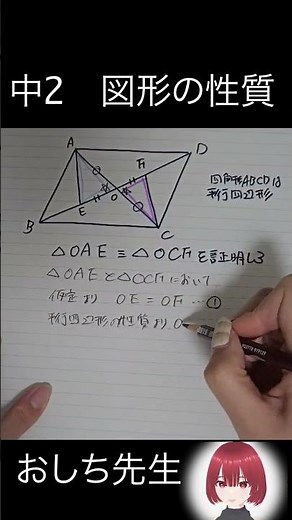 中2 図形の性質
A
D
F
O
E
B
C
四角形ABCDは
平行四辺形
△OAE≡△OCFを証明しろ
△OAEと△OCFにおいて
仮定より OE=OF…①
平行四辺形の性質より O
おしち先生